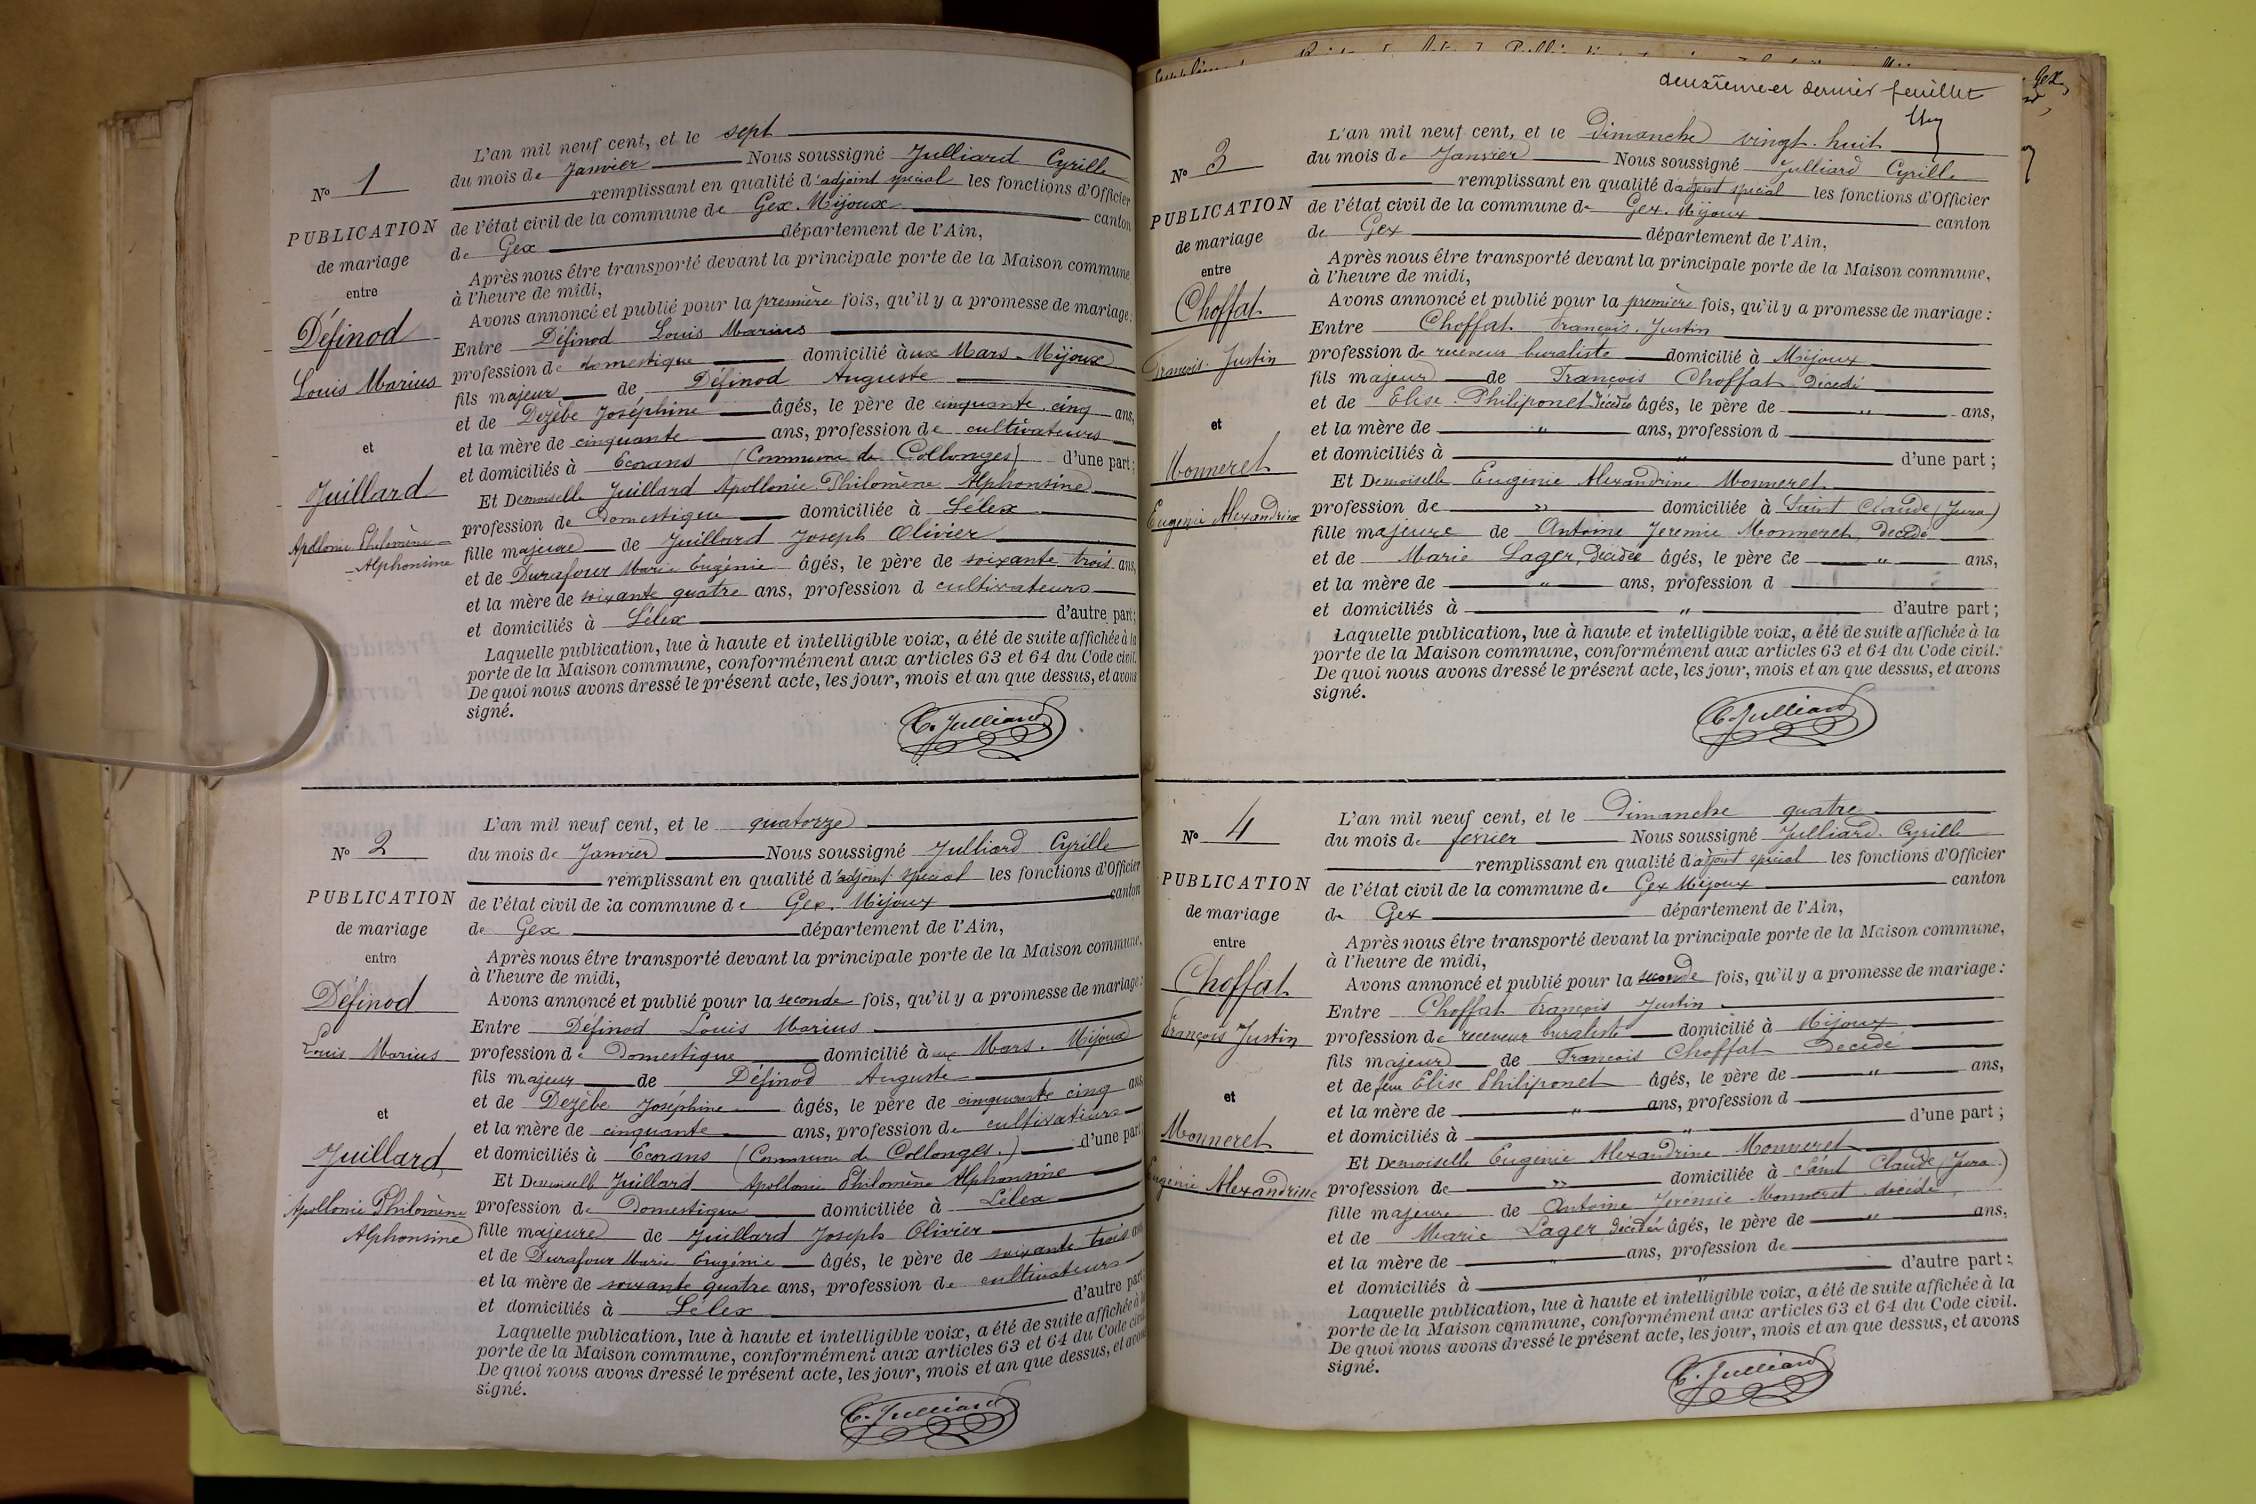 N° 1
PUBLICATION
de mariage
entre
Définod
Louis Marius
et
Juillard
Apollonie Philomène
Alphonsine
L'an mil neuf cent, et le sept
du mois de Janvier Nous soussigné Julliard Cyrille
remplissant en qualité d'adjoint spécial les fonctions d'Officier
de l'état civil de la commune de Gex. Mijoux canton
de Gex département de l'Ain,
Après nous être transporté devant la principale porte de la Maison commune
à l'heure de midi,
Avons annoncé et publié pour la première fois, qu'il y a promesse de mariage:
Entre Définod Louis Marius
profession de domestique domicilié àux Mars - Mijoux
fils majeur de Définod Auguste
et de Dezèbe Joséphine âgés, le père de cinquante cinq ans,
et la mère de cinquante ans, profession de cultivateurs
et domiciliés à Ecorans (Commune de Collonges) d'une part;
Et Demoiselle Juillard Apollonie Philomène Alphonsine
profession de Domestique domiciliée à Lélex
fille majeure de Juillard Joseph Olivier
et de Durafour Marie Eugénie âgés, le père de soixante trois ans,
et la mère de soixante quatre ans, profession d cultivateurs
et domiciliés à Lélex d'autre part;
Laquelle publication, lue à haute et intelligible voix, a été de suite affichée à la
porte de la Maison commune, conformément aux articles 63 et 64 du Code civil.
De quoi nous avons dressé le présent acte, les jour, mois et an que dessus, et avons
signé.
C. Julliard
N° 2
PUBLICATION
de mariage
entre
Définod
Louis Marius
et
Juillard
Apollonie Philomène
Alphonsine
L'an mil neuf cent, et le quatorze
du mois de Janvier Nous soussigné Julliard Cyrille
remplissant en qualité d'adjoint spécial les fonctions d'Officier
de l'état civil de la commune de Gex. Mijoux canton
de Gex département de l'Ain,
Après nous être transporté devant la principale porte de la Maison commune,
à l'heure de midi,
Avons annoncé et publié pour la seconde fois, qu'il y a promesse de mariage:
Entre Définod Louis Marius
profession de Domestique domicilié à ux Mars. Mijoux
fils majeur de Définod Auguste
et de Dezèbe Joséphine âgés, le père de cinquante cinq ans,
et la mère de cinquante ans, profession de cultivateurs
et domiciliés à Ecorans (Commune de Collonges.) d'une part
Et Demoiselle Juillard Apollonie Philomène Alphonsine
profession de Domestique domiciliée à Lélex
fille majeure de Juillard Joseph Olivier
et de Durafour Marie Eugénie âgés, le père de soixante trois ans
et la mère de soixante quatre ans, profession de cultivateurs
et domiciliés à Lélex d'autre part
Laquelle publication, lue à haute et intelligible voix, a été de suite affichée à la
porte de la Maison commune, conformément aux articles 63 et 64 du Code civil
De quoi nous avons dressé le présent acte, les jour, mois et an que dessus, et avons
signé.
C. Julliard
deuxième et dernier feuillet
N° 3
PUBLICATION
de mariage
entre
Choffat
François Justin
et
Monneret
Eugénie Alexandrine
L'an mil neuf cent, et le Dimanche vingt-huit
du mois de Janvier Nous soussigné Julliard Cyrille
remplissant en qualité d'adjoint spécial les fonctions d'Officier
de l'état civil de la commune de Gex. Mijoux canton
de Gex département de l'Ain,
Après nous être transporté devant la principale porte de la Maison commune,
à l'heure de midi,
Avons annoncé et publié pour la première fois, qu'il y a promesse de mariage:
Entre Choffat François. Justin
profession de receveur buraliste domicilié à Mijoux
fils majeur de François Choffat Décédé
et de Elise Philiponet décédée âgés, le père de " ans,
et la mère de " ans, profession d
et domiciliés à " d'une part;
Et Demoiselle Eugénie Alexandrine Monneret
profession de " domiciliée à Saint Claude (Jura)
fille majeure de Antoine Jérémie Monneret, Décédé
et de Marie Lager, Décédée âgés, le père de " ans,
et la mère de " ans, profession d
et domiciliés à " d'autre part;
Laquelle publication, lue à haute et intelligible voix, a été de suite affichée à la
porte de la Maison commune, conformément aux articles 63 et 64 du Code civil.
De quoi nous avons dressé le présent acte, les jour, mois et an que dessus, et avons
signé.
C. Julliard
N° 4
PUBLICATION
de mariage
entre
Choffat
François Justin
et
Monneret
Eugénie Alexandrine
L'an mil neuf cent, et le Dimanche quatre
du mois de février Nous soussigné Julliard. Cyrille
remplissant en qualité d'adjoint spécial les fonctions d'Officier
de l'état civil de la commune de Gex Mijoux canton
de Gex département de l'Ain,
Après nous être transporté devant la principale porte de la Maison commune,
à l'heure de midi,
Avons annoncé et publié pour la seconde fois, qu'il y a promesse de mariage:
Entre Choffat François Justin
profession de receveur buraliste domicilié à Mijoux
fils majeur de François Choffat Décédé
et de feue Elise Philiponet âgés, le père de " ans,
et la mère de " ans, profession d
et domiciliés à " d'une part;
Et Demoiselle Eugénie Alexandrine Monneret
profession de " domiciliée à Saint Claude (Jura)
fille majeure de Antoine Jérémie Monneret. décédé
et de Marie Lager Décédée âgés, le père de " ans,
et la mère de " ans, profession de
et domiciliés à " d'autre part;
Laquelle publication, lue à haute et intelligible voix, a été de suite affichée à la
porte de la Maison commune, conformément aux articles 63 et 64 du Code civil.
De quoi nous avons dressé le présent acte, les jour, mois et an que dessus, et avons
signé.
C. Julliard